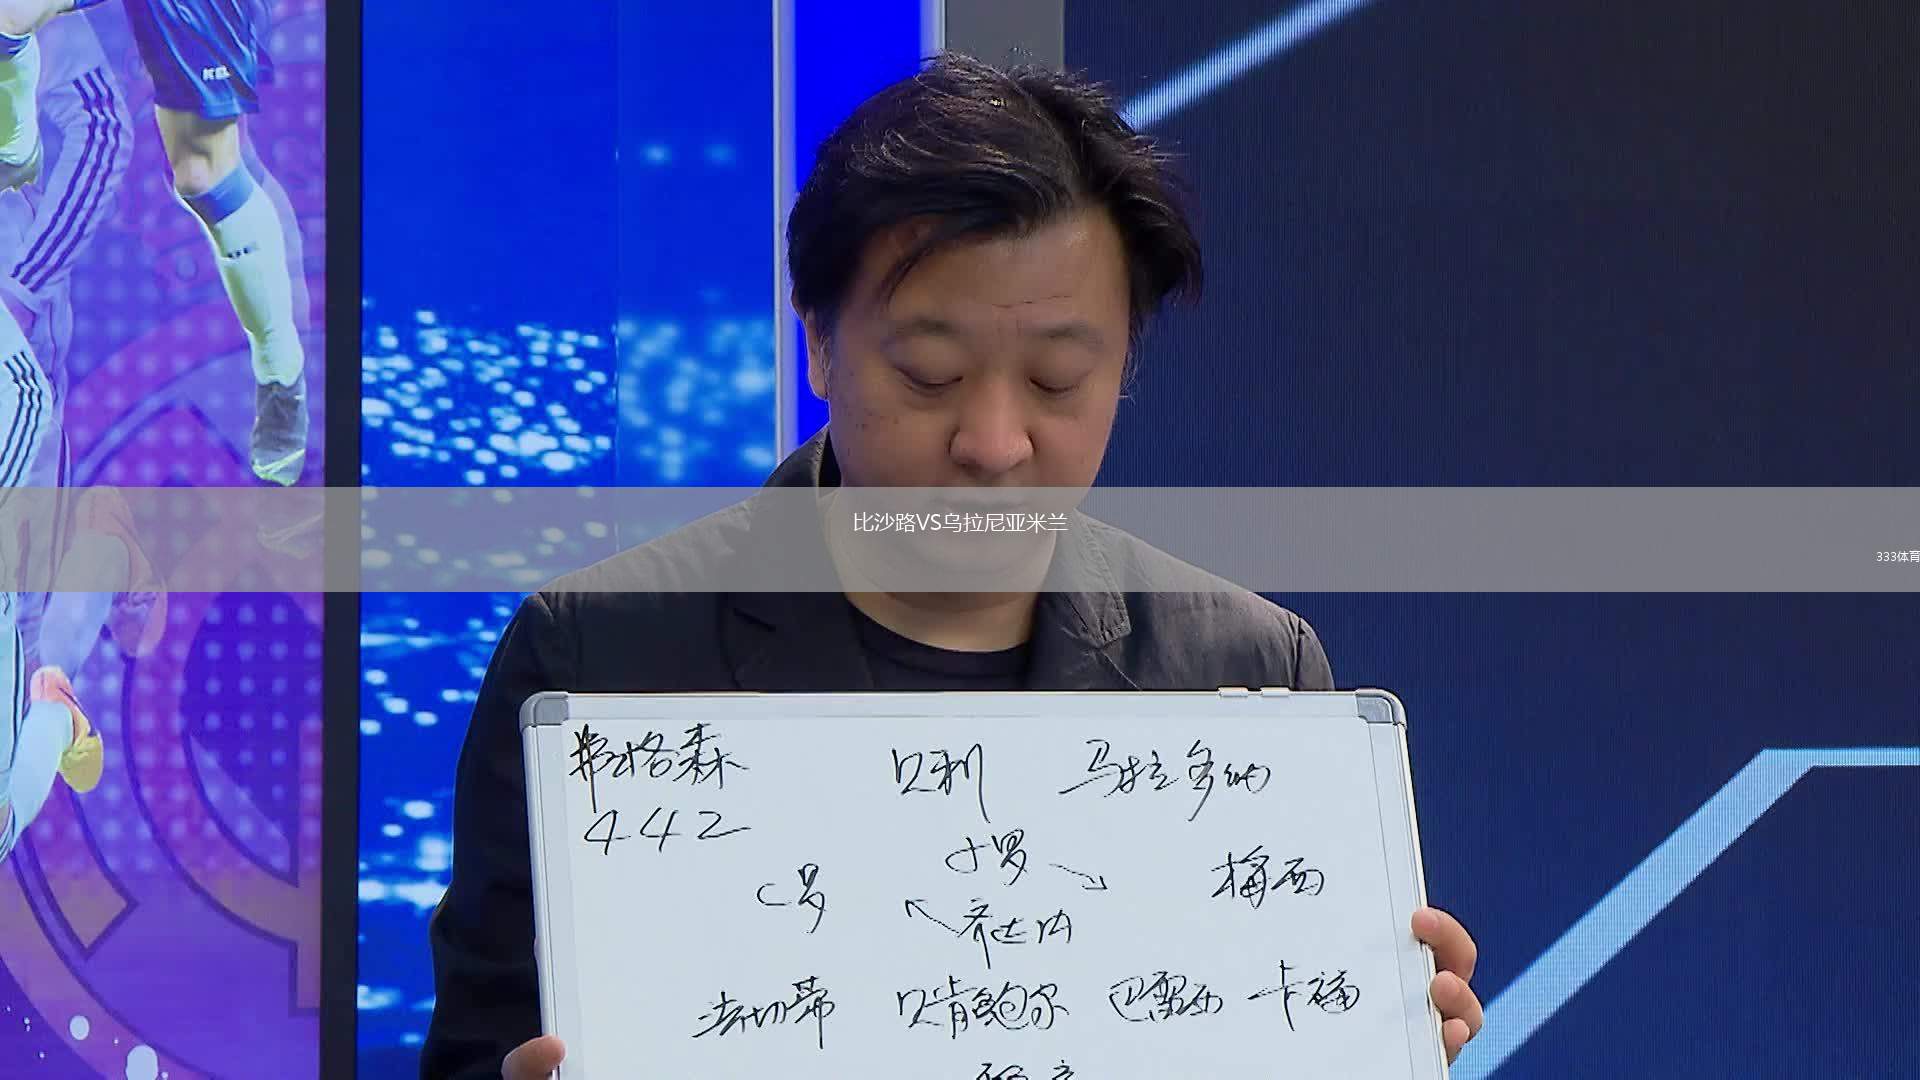 比沙路VS乌拉尼亚米兰
333体育
弗格森 贝利 马拉多纳
442
小罗
C罗 梅西
齐达内
法切蒂 贝肯鲍尔 巴雷西 卡福